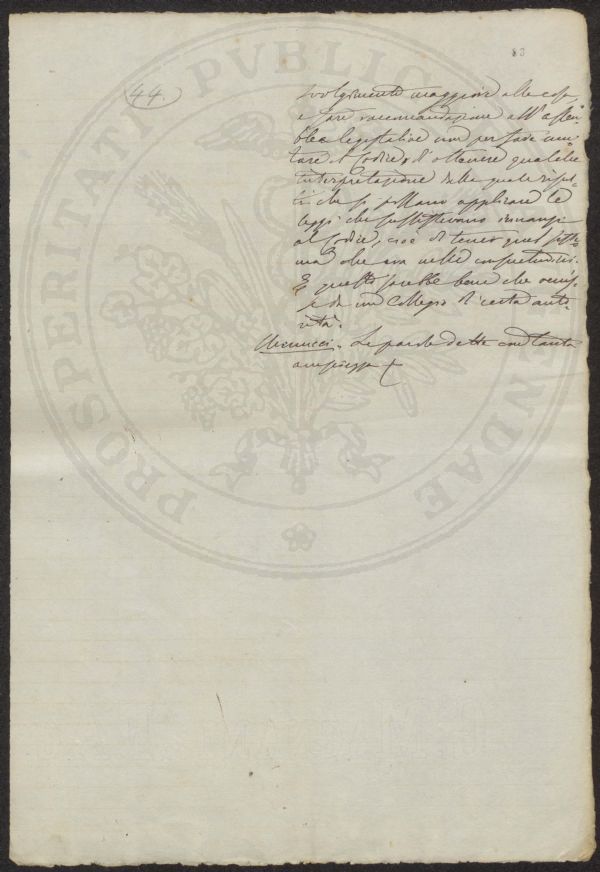 83
44.
svolgimento maggiore alle cose
e fare raccomandazione all'assem
blea legislativa non per fare mu
tare il Codice, d'ottenere qualche
interpretazione nelle quale rispet
ti che si possano applicare le
leggi che sussistevano innanzi
al Codice, cioè di tener quel siste
ma che era nelle consuetudini.
E questo sarebbe bene che venis
se da un Collegio di certa auto
rità.
Le parole dette con tanta
PROSPERITATI PVBLICAE AVGENDAE